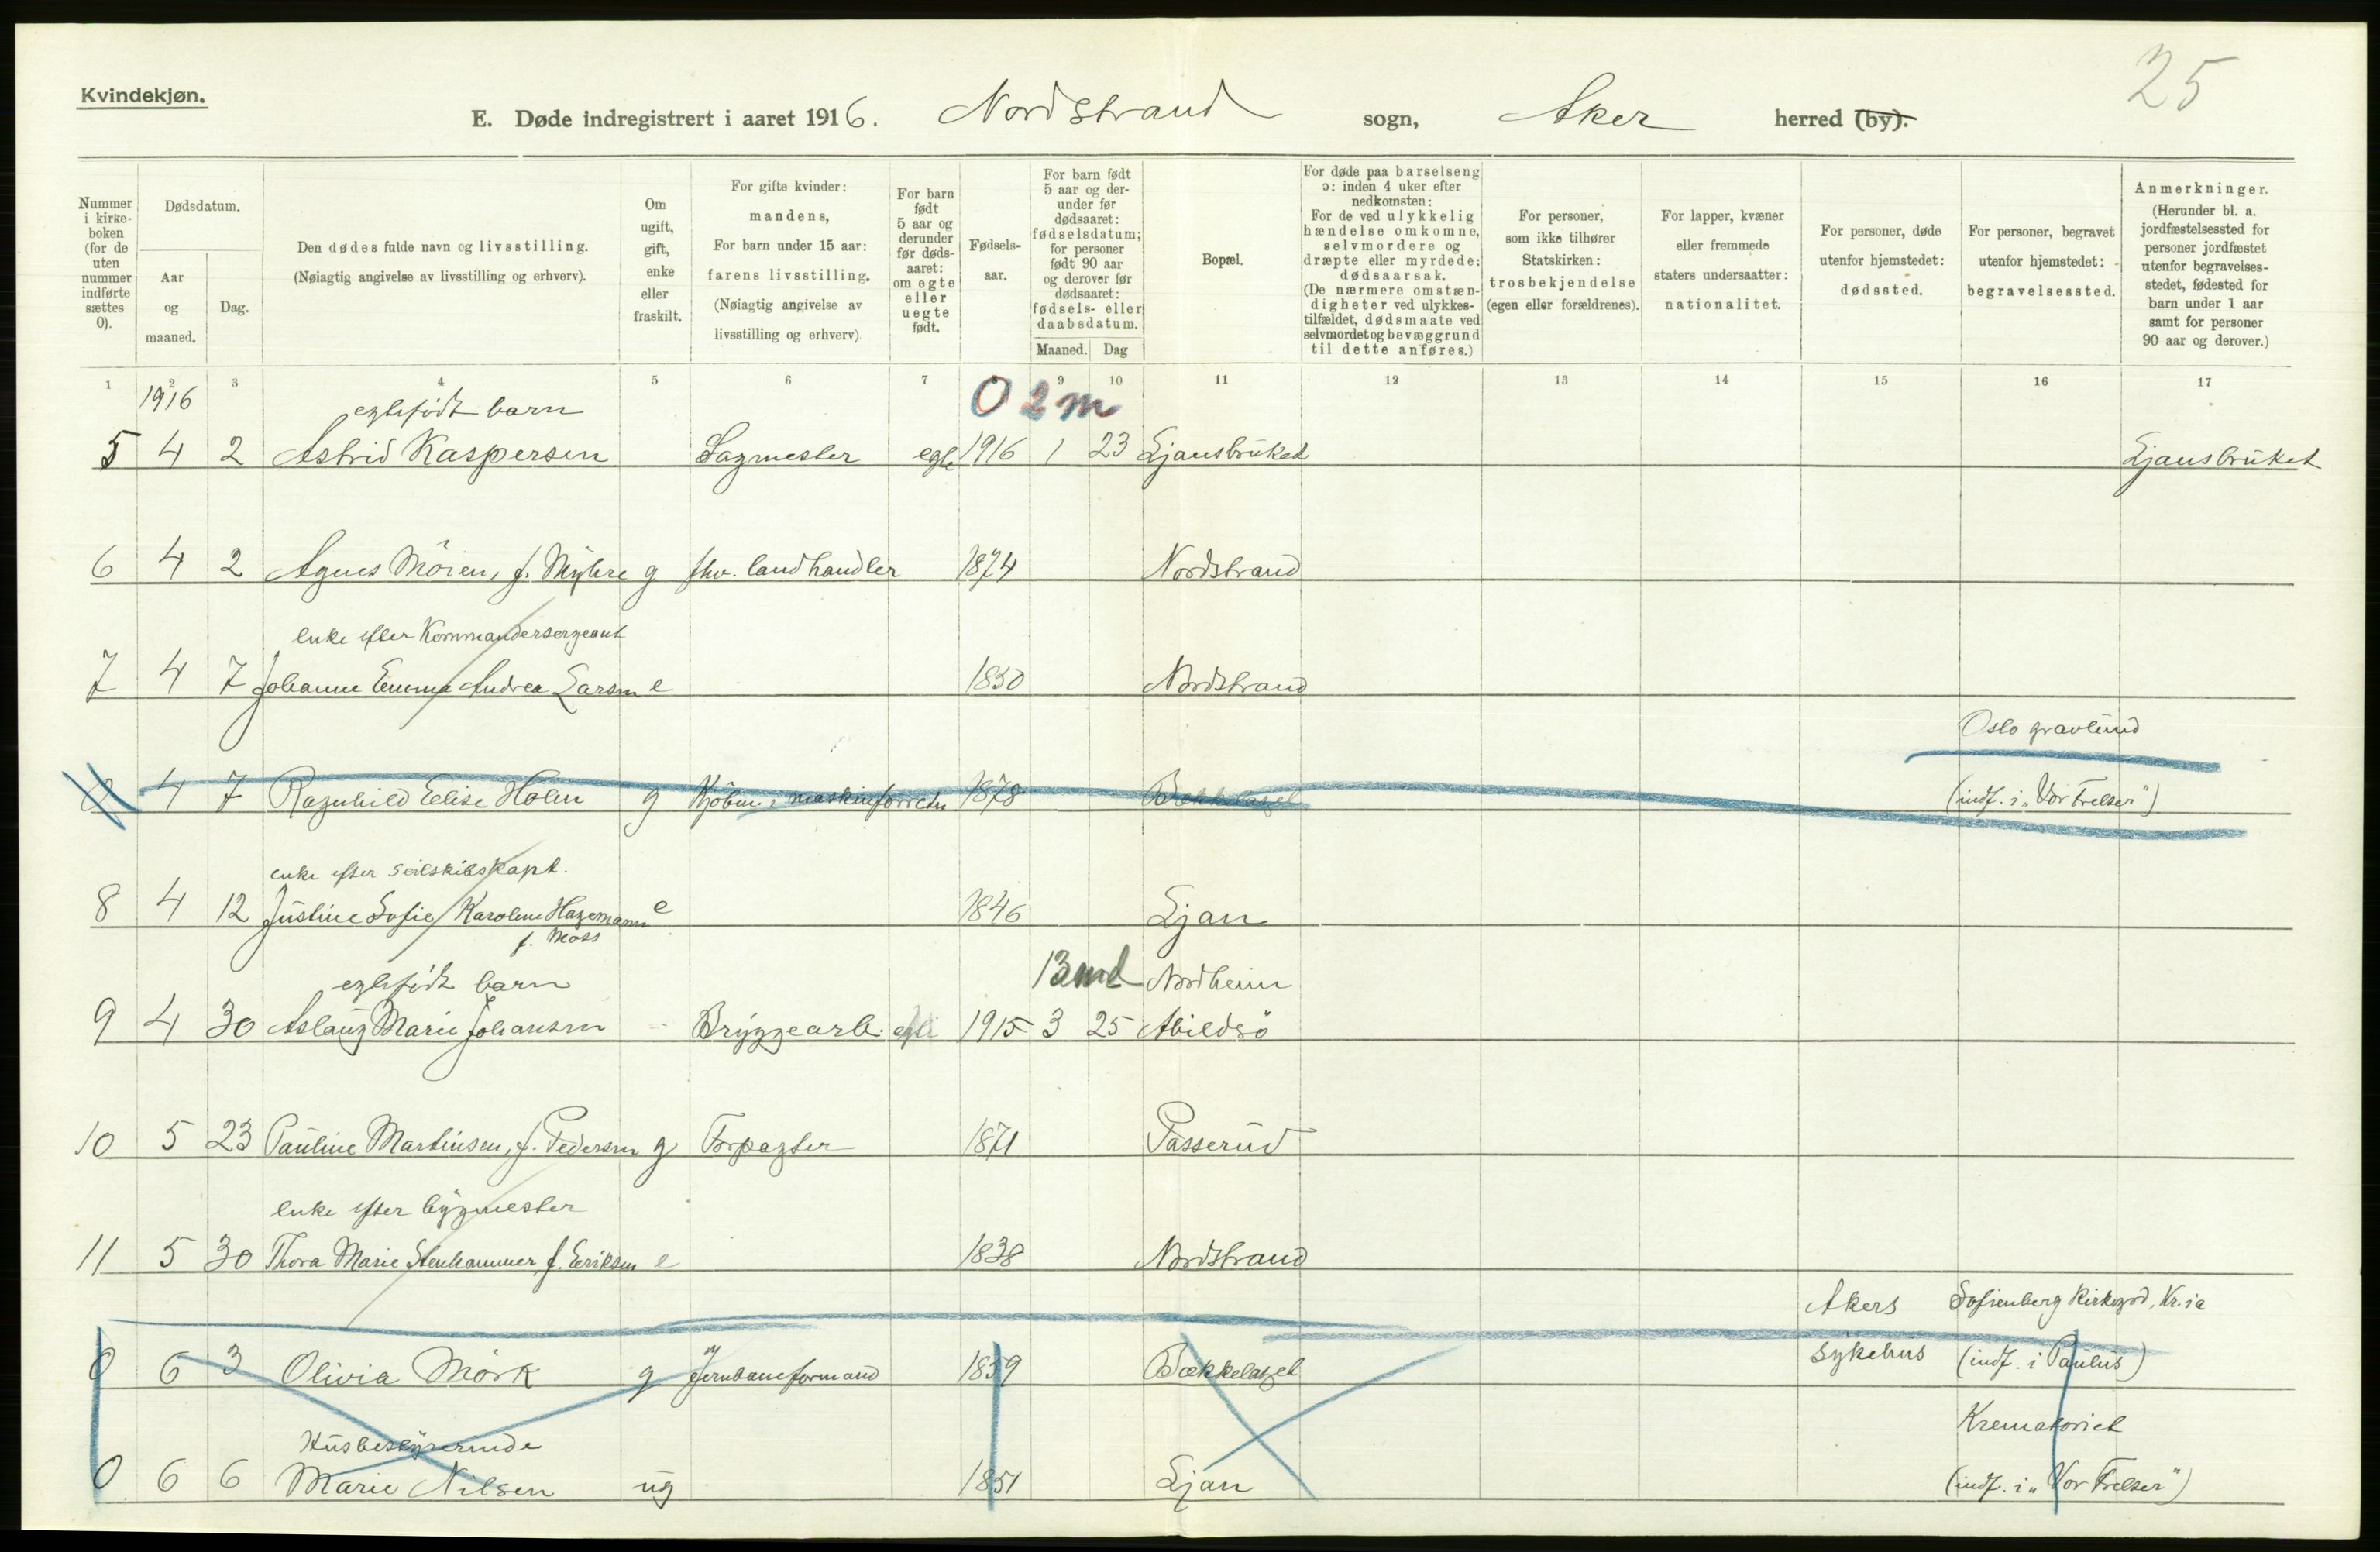 25
Kvindekjøn.
E. Døde indregistrert i aaret 1916. Nordstrand sogn, Aker herred (by).
Nummer i kirkeboken (for de uten nummer indførte sættes 0).
Dødsdatum.
Aar og maaned.
Dag.
Den dødes fulde navn og livsstilling.
(Nøiagtig angivelse av livsstilling og erhverv).
Om ugift, gift, enke eller fraskilt.
For gifte kvinder: mandens, For barn under 15 aar: farens livsstilling. (Nøiagtig angivelse av livsstilling og erhverv).
For barn født 5 aar og derunder før dødsaaret: om egte eller uegte født.
Fødselsaar.
For barn født 5 aar og derunder før dødsaaret: fødselsdatum; for personer født 90 aar og derover før dødsaaret: fødsels- eller daabsdatum.
Maaned. Dag
Bopæl.
For døde paa barselseng ɔ: inden 4 uker efter nedkomsten: For de ved ulykkelig hændelse omkomne, selvmordere og dræpte eller myrdede: dødsaarsak. (De nærmere omstændigheter ved ulykkestilfældet, dødsmaate ved selvmordet og bevæggrund til dette anføres.)
For personer, som ikke tilhører Statskirken: trosbekjendelse (egen eller forældrenes).
For lapper, kvæner eller fremmede staters undersaatter: nationalitet.
For personer, døde utenfor hjemstedet: dødssted.
For personer, begravet utenfor hjemstedet: begravelsessted.
Anmerkninger. (Herunder bl. a. jordfæstelsessted for personer jordfæstet utenfor begravelsesstedet, fødested for barn under 1 aar samt for personer 90 aar og derover.)
1 2 3 4 5 6 7 8 9 10 11 12 13 14 15 16 17
1916 egtefødt barn 0 2 m
5 4 2 Astrid Kaspersen Sagmester egte 1916 1 23 Ljansbruket Ljansbruket
6 4 2 Agnes Möien, f. Myhre g fhv. landhandler 1874 Nordstrand
enke efter Kommandersergeant
7 4 7 Johanne Emma Andrea Larsen e 1850 Nordstrand
Oslo gravlund
0 4 7 Ragnhild Elise Holm g Kjöbm. i maskinforretn 1878 Bækkelaget (indf. i "Vor Frelser")
enke efter seilskibskapt.
8 4 12 Justine Sofie Karoline Hagemann e 1846 Ljan
f. Moss
egtefødt barn 13 md Nordheim
9 4 30 Aslaug Marie Johansen Bryggearb. egte 1915 3 25 Abildsö
10 5 23 Pauline Martinsen, f. Pedersen g Forpagter 1871 Passerud
enke efter bygmester
11 5 30 Thora Marie Stenhammer f. Eriksen e 1838 Nordstrand
Akers Sofienberg Kirkegd, Kr.ia
0 6 3 Olivia Mörk g Jernbaneformand 1859 Bækkelaget sykehus (indf. i Paulus)
Husbestyrerinde Krematoriet
0 6 6 Marie Nilsen ug 1851 Ljan (indf. i "Vor Frelser")